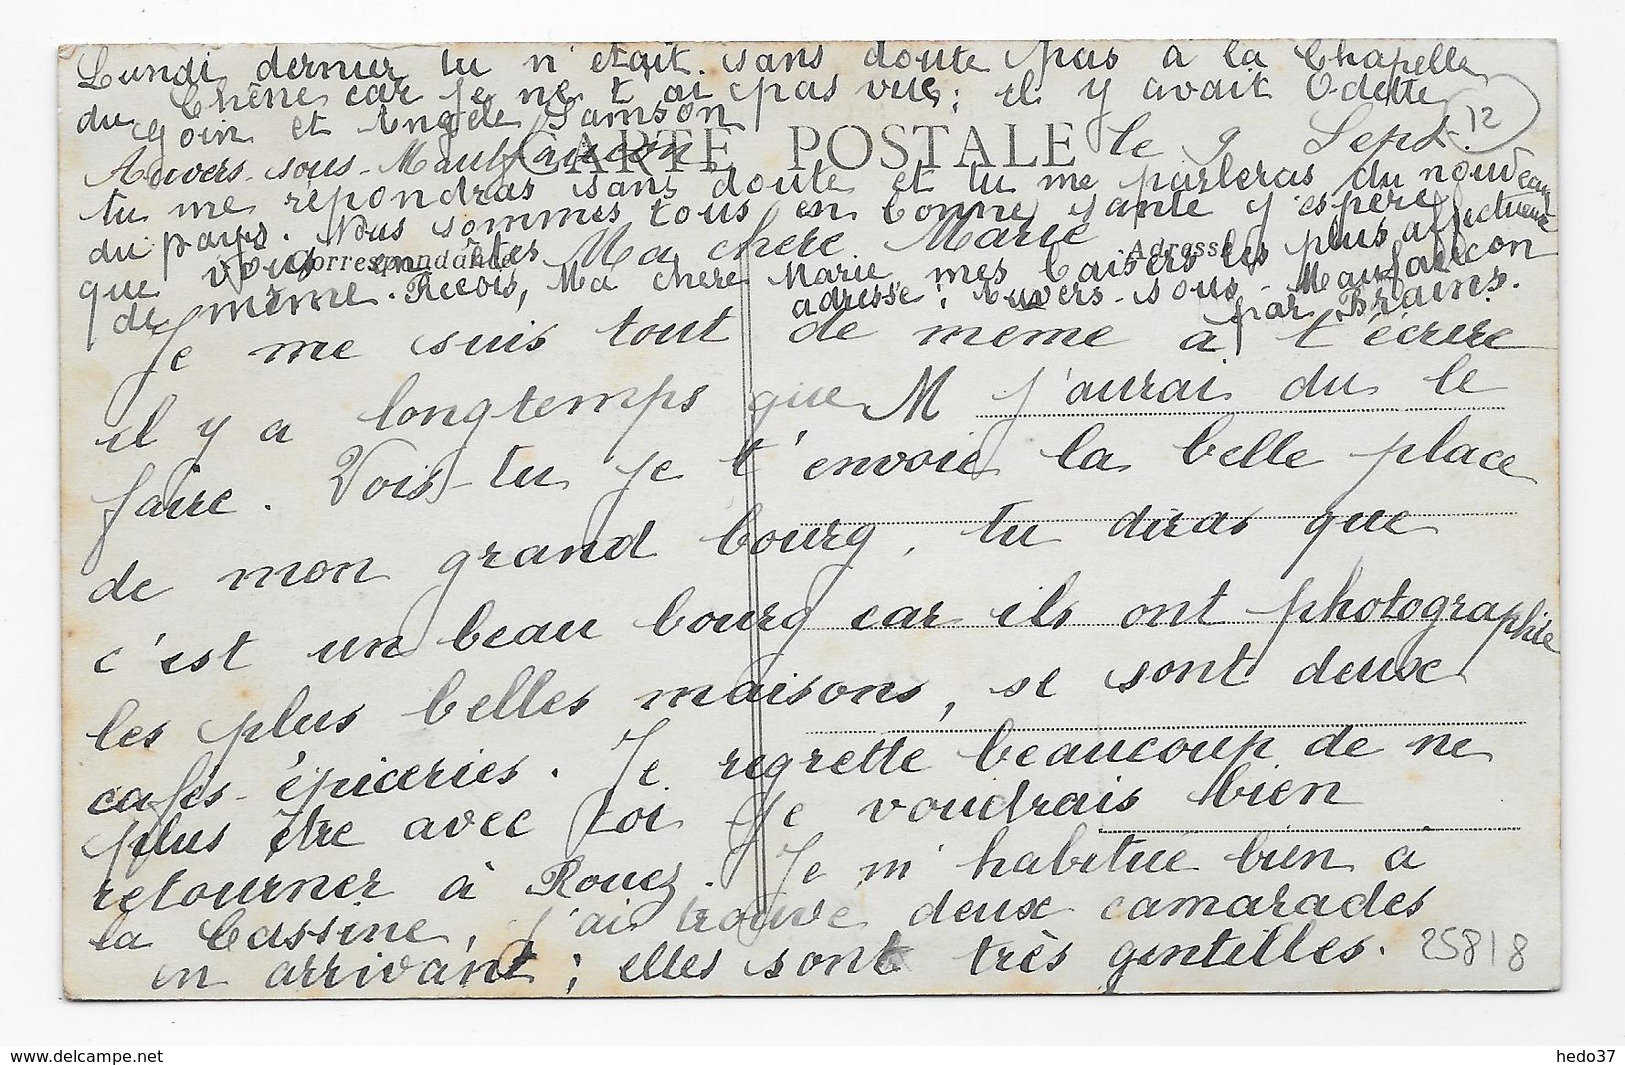 Lundi dernier tu n'était sans doute pas à la Chapelle
du Chêne car je ne t'ai pas vue; il y avait Odette
Goin et Angèle Samson
CARTE POSTALE
le 9 Sept. 12
Auvers-sous-Montfaucon
tu me répondras sans doute et tu me parleras du nouveau
du pays. Nous sommes tous en bonne santé j'espère
que vous en êtes
Correspondance
Ma chere Marie
Adresse
de même. Reçois, Ma chere Marie mes baisers les plus affectueux
adresse: Auvers-sous-Maufaucon
par Brains.
Je me suis tout de meme a t'écrire
il y a longtemps que M j'aurai du le
faire. Vois-tu je t'envoie la belle place
de mon grand bourg, tu diras que
c'est un beau bourg car ils ont photographié
les plus belles maisons, se sont deux
cafés-épiceries. Je regrette beaucoup de ne
plus être avec toi Je voudrais bien
retourner à Rouez. Je m'habitue bien a
la Cassine, j'ai trouvé deux camarades
en arrivant; elles sont très gentilles.
25818
hedo37